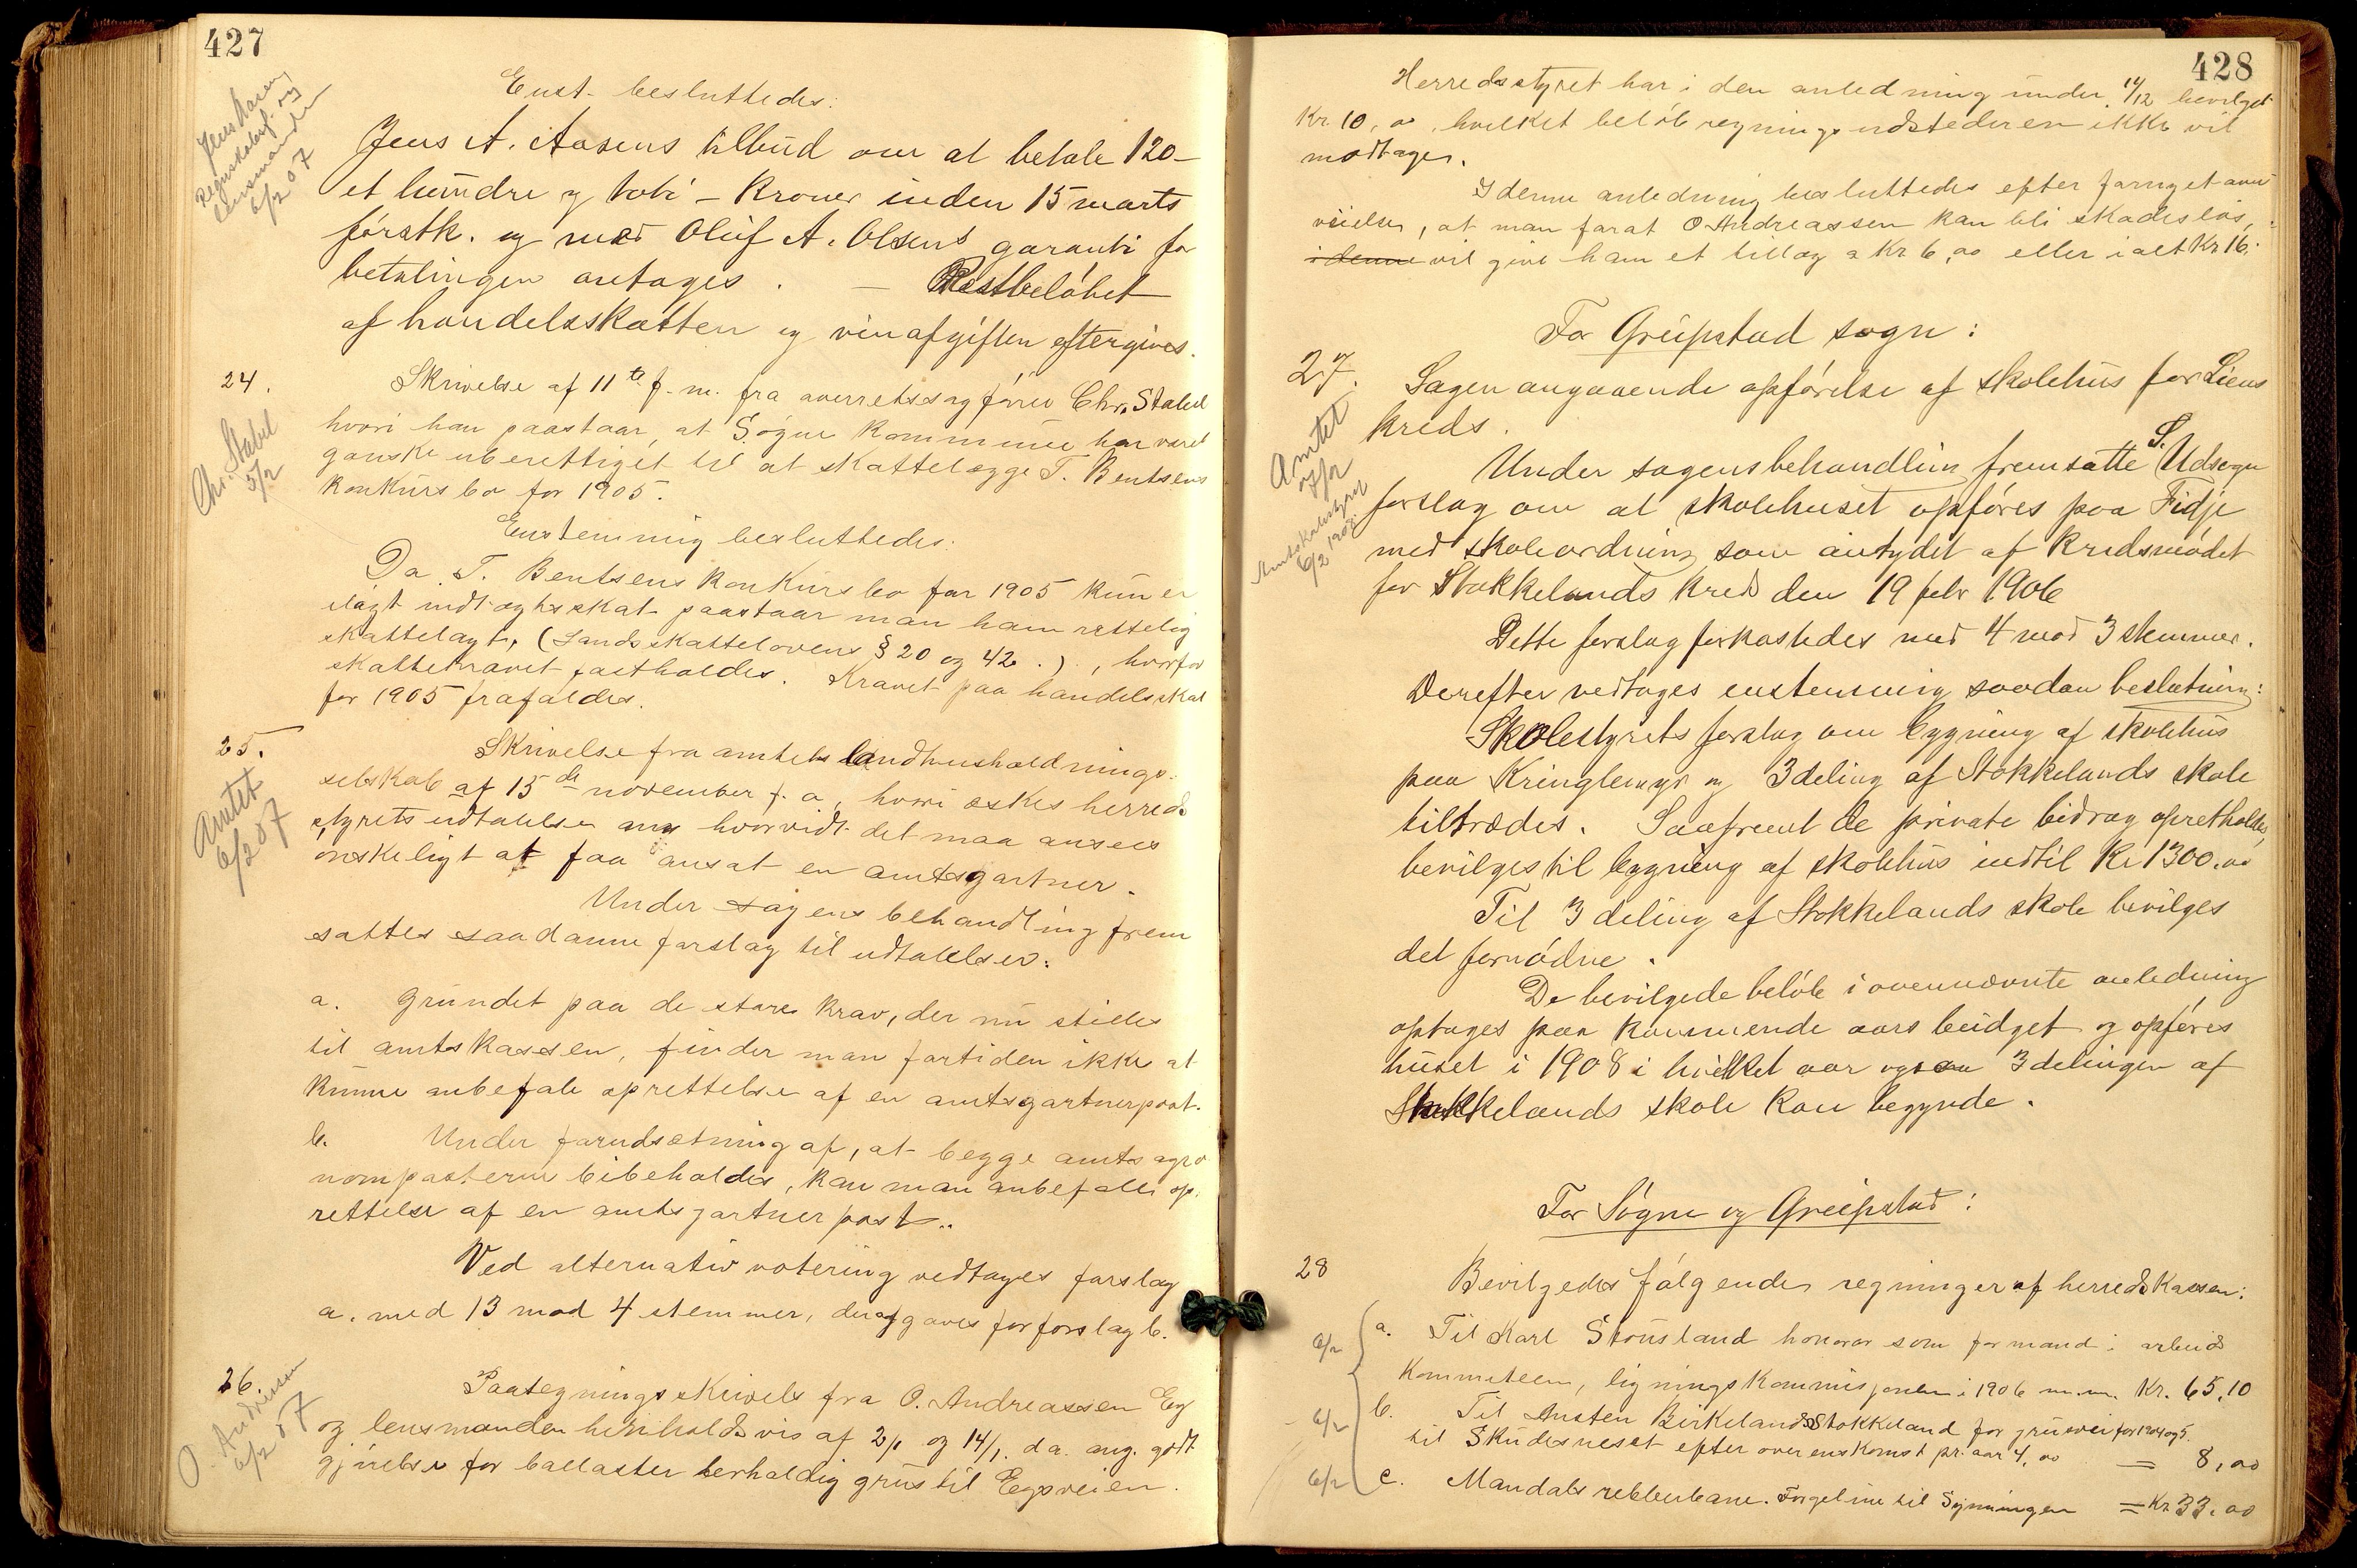 427
Enst. besluttedes:
Jens Aasen
Regnskabsf. og
lensmanden
6/2 07
Jens A. Aasens tilbud om at betale 120 –
et hundre og tobi – Kroner inden 15 marts
förstk. og med Oluf A. Olsens garanti for
betalingen antages. – Restbelöbet
af handelsskatten og vinafgiften eftergives.
24.
Skrivelse af 11te f. m. fra overretssagförer Chr. Stabel
hvori han paastaar, at Sögne Kommune har været
ganske uberettiget til at skattelægge T. Bentsens
Konkursbo for 1905.
Chr. Stabel
5/2
Enstemmig besluttedes:
Da T. Bentsens Konkursbo for 1905 kun er
ilagt indtægtsskat paastaar man ham rettelig
skattelagt, (Landsskattelovens § 20 og 42.), hvorfor
skattekravet fastholdes. Kravet paa handelsskat
for 1905 frafaldes.
25.
Skrivelse fra amtets landhusholdnings-
selskab af 15de november f. a., hvori æskes herreds
styrets udtalelse om hvorvidt det maa ansees
önskeligt at faa ansat en amtsgartner.
Amtet
6/2 07
Under sagens behandling frem
sattes saadanne forslag til udtalelser:
a. Grundet paa de store krav, der nu stilles
til amtskassen, finder man fortiden ikke at
kunne anbefale oprettelse af en amtsgartnerpost.
b. Under forudsætning af, at begge amtsagro
nomposterne bibeholdes, kan man anbefale op-
rettelse af en amtsgartnerpost..
Ved alternativ votering vedtages forslag
a. med 13 mod 4 stemmer, der afgaves for forslag b.
26.
Paategningsskrivelse fra O. Andreassen Eg
og lensmanden henholdsvis af 2/1 og 14/1 d. a. ang. godt-
gjörelse for ballaster berholdig grus til Egsveien.
O. Andreassen
6/2 07
428
Herredsstyret har i den anledning under 14/12 bevilget
Kr. 10,00, hvilket belöb regningsudstederen ikke vil
modtage.
I denne anledning besluttedes efter foreget
, at man forat O Andreassen kan bli skadeslös,
i denne vil give ham et tillæg a Kr 6,00 eller ialt Kr 16.
For Greipstad sogn:
27.
Sagen angaaende opförelse af skolehus for Liens
kreds.
Amtet
7/2
Amtskolestyret
6/2 1907.
Under sagens behandling fremsatte S. Udsogn
forslag om at skolehuset opföres paa Fidje
med skoleordning som antydet af Kredsmödet
for Stokkelands kreds den 19 febr 1906
Dette forslag forkastedes med 4 mod 3 stemmer.
Derefter vedtages enstemmig saadan beslutning:
Skolestyrets forslag om bygning af skolehus
paa Kringlemyr og 3deling af Stokkelands skole
tiltrædes. Saafremt de private bidrag opretholdes,
bevilges til bygning af skolehus indtil Kr 1300.00
Til 3 deling af Stokkelands skole bevilges
det fornödne.
De bevilgede belöb i ovennævnte anledning
optages paa kommende aars budget og opföres
huset i 1908 i hvilket aar ogsaa 3 delingen af
Stokkelands skole kan begynde.
For Sögne og Greipstad:
28
Bevilgedes fölgende regninger af herredskassen:
6/2 a. Til Karl Stausland honorar som formand i arbeids
Kommiteen, ligningskommisjonen i 1906 m.m. Kr. 65,10
6/2 b. Til Austen Birkeland Stokkeland for grusvei for 1904 og 5.
til Skudesneset efter overenskomst pr. aar 4,00 = 8,00
6/2 c. Mandals rebberbane. til Sygningen = Kr. 33.00